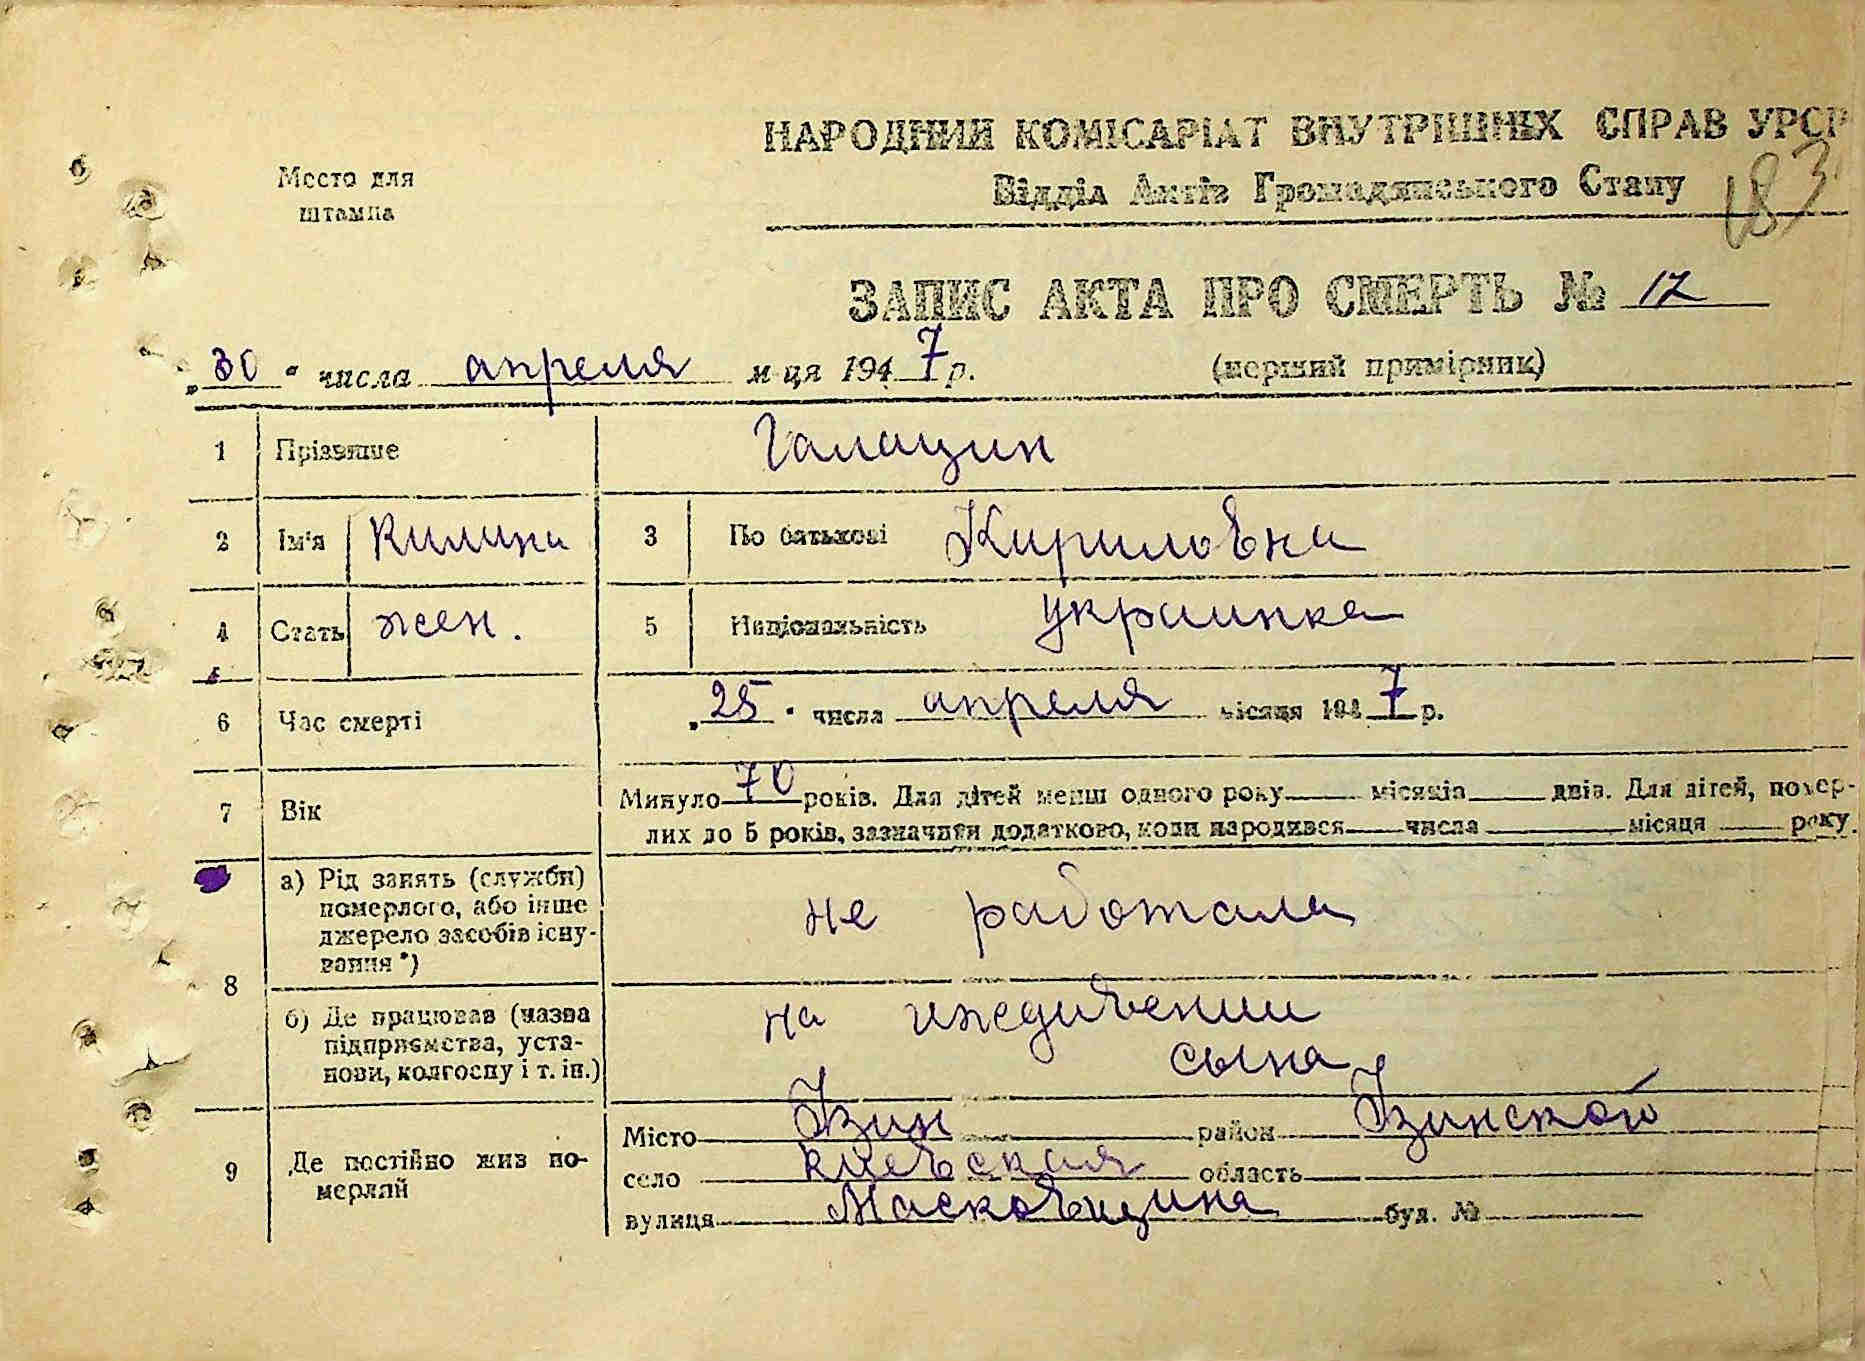 НАРОДНИЙ КОМІСАРІАТ ВНУТРІШНІХ СПРАВ УРСР
Место для штампа
Відділ Актів Громадянського Стану
183
ЗАПИС АКТА ПРО СМЕРТЬ № 12
„30" числа апреля м-ця 1947 р. (перший примірник)
1 Прізвище Галацин
2 Ім'я Килина 3 По батькові Кириловна
4 Стать жен. 5 Національність украинка
6 Час смерті „25" числа апреля місяця 1947 р.
7 Вік Минуло 70 років. Для дітей менш одного року місяців днів. Для дітей, помер-
лих до 5 років, зазначити додатково, коли народився числа місяця року.
8 а) Рід занять (служби)
померлого, або інше
джерело засобів існу-
вання *)
не работала
б) Де працював (назва
підприємства, уста-
нови, колгоспу і т. ін.)
на иждивении
сына
9 Де постійно жив по-
мерлий
Місто Узин район Узинской
село Киевская область
вулиця Масковщина буд. №